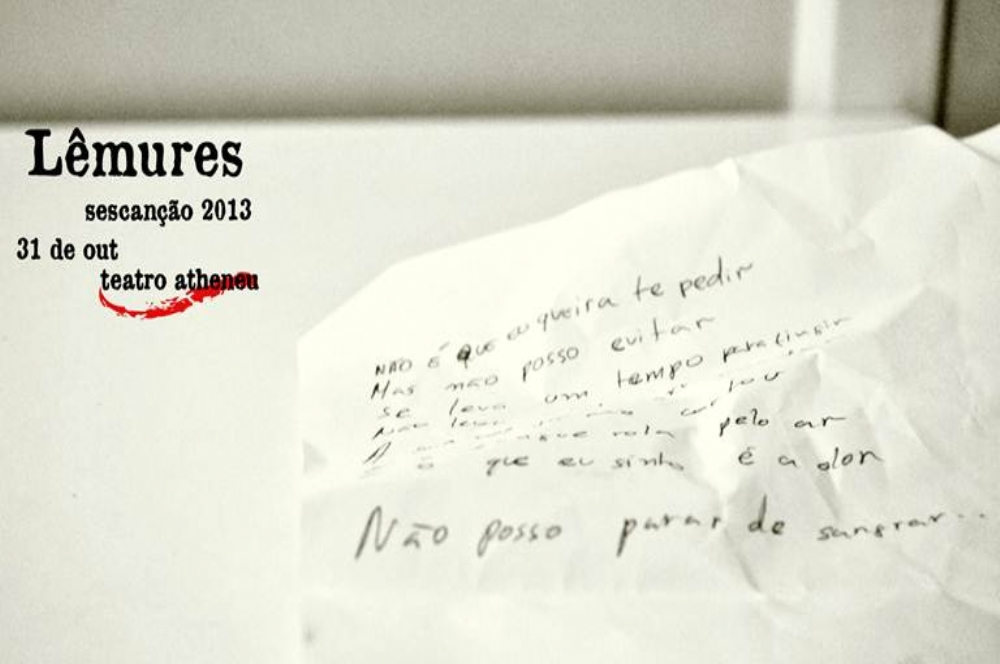 Lêmures
sescanção 2013
31 de out
teatro atheneu
NÃO É QUE eu queira te pedir
Mas não posso evitar
se leva um tempo para
Não
A rola pelo ar
é o que eu sinto é a dor
Não posso parar de sangrar...